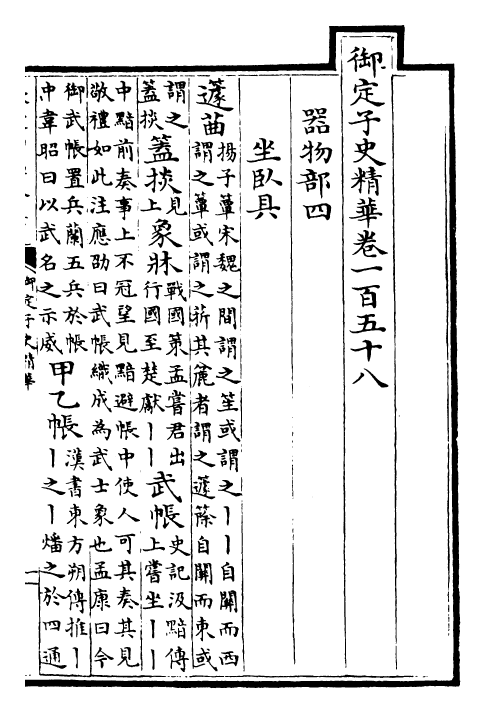 御定子史精華卷一百五十八
器物部四
坐臥具
蘧苗
揚子簟宋魏之間謂之笙或謂之丨丨自關而西
謂之簟或謂之䇷其麄者謂之蘧篨自關而東或
謂之
蓋掞
蓋掞
見
上
象牀
戰國策孟嘗君出
行國至楚獻丨丨
武帳
史記汲黯傳
上嘗坐丨丨
中黯前奏事上不冠望見黯避帳中使人可其奏其見
敬禮如此注應劭曰武帳織成為武士象也孟康曰今
御武帳置兵蘭五兵於帳
中韋昭曰以武名之示威
甲乙帳
漢書東方朔傳推丨
丨之丨燔之於四通
御定子史精華
一